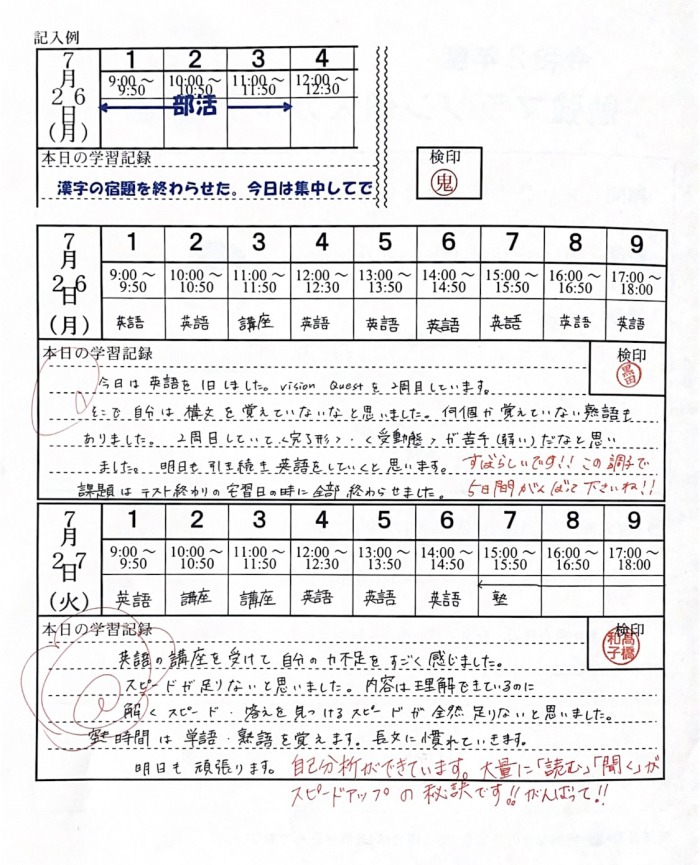 記入例
7月26日(月) 1 2 3 4
9:00～9:50 10:00～10:50 11:00～11:50 12:00～12:30
部活
本日の学習記録 検印
漢字の宿題を終わらせた。今日は集中してで 鬼
7月26日(月) 1 2 3 4 5 6 7 8 9
9:00～9:50 10:00～10:50 11:00～11:50 12:00～12:30 13:00～13:50 14:00～14:50 15:00～15:50 16:00～16:50 17:00～18:00
英語 英語 講座 英語 英語 英語 英語 英語 英語
本日の学習記録 検印
黒田
今日は英語を1日しました。vision Questを2周目しています。
そこで自分は構文を覚えていないなと思いました。何個か覚えていない熟語も
ありました。2周目していて<完了形>・<受動態>が苦手(弱い)だなと思い
ました。明日も引き続き英語をしていくと思います。 すばらしいです!!この調子で
課題はテスト終わりの宅習日の時に全部終わらせました。 5日間がんばって下さいね!!
7月27日(火) 1 2 3 4 5 6 7 8 9
9:00～9:50 10:00～10:50 11:00～11:50 12:00～12:30 13:00～13:50 14:00～14:50 15:00～15:50 16:00～16:50 17:00～18:00
英語 講座 講座 英語 英語 英語 塾
本日の学習記録 検印
高橋和子
英語の講座を受けて自分の力不足をすごく感じました。
スピードが足りないと思いました。内容は理解できているのに
解くスピード・答えを見つけるスピードが全然足りないと思いました。
時間は単語・熟語を覚えます。長文に慣れていきます。
明日も頑張ります。 自己分析ができています。大量に「読む」「聞く」が
スピードアップの秘訣です!!がんばって!!